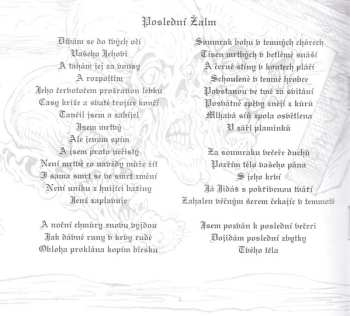 Poslední Žalm
Dívám se do tvých očí
Vašeho Jehovi
A tahám jej za vousy
A rozpoltím
Jeho červotočem prožranou lebku
Časy kříže a svaté trojice končí
Tančil jsem a zabíjel
Jsem mrtvý
Ale jenom spím
A jsem proto věčistý
Není mrtvé co navždy může žít
I sama smrt se ve smrt změní
Není úniku z hnijící bažiny
Jenž zaplavuje
A noční chmúry znovu vyjdou
Jak dávné runy v krvy rudé
Obloha proklána kopím blesku
Soumrak bohu v temných chórech
Tisíce mrtvých v betlémě snáší
A černé stíny v koutech pláčí
Schoulené v temné hrobce
Povstanou ve tmě za svítání
Posvátné zpěvy znějí z kůrů
Mlhavá síň zpola osvětlena
V září plamínků
Za soumraku večeře duchů
Pozřím tělo vašeho pána
S jeho krví
Já Jidáš s pokřivenou tváří
Zahalen věčným šerem čekajíc v temnotě
Jsem pozván k poslední večeři
Dojídám poslední zbytky
Tvého těla